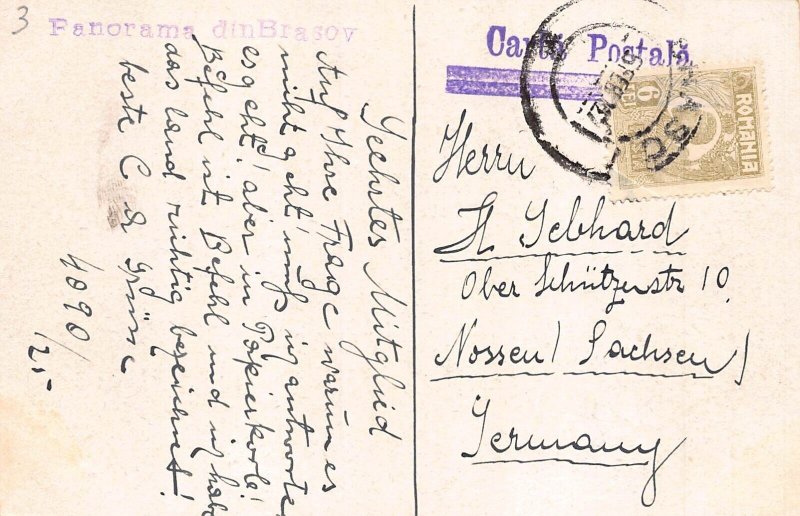 3
Panorama din Brasov
Geehrtes Mitglied
Auf Ihre Frage warum es
nicht geht muß ich antworten
es geht! aber in Papierkorb!
Befehl ist Befehl und ich habe
das Land richtig bezeichnet!
beste C & Grüsse
4090/25
Cartă Postală
BRASO
ROMANIA
6 LEI
Herrn
H Gebhard
Ober Schützenstr 10
Nossen / Sachsen /
Germany